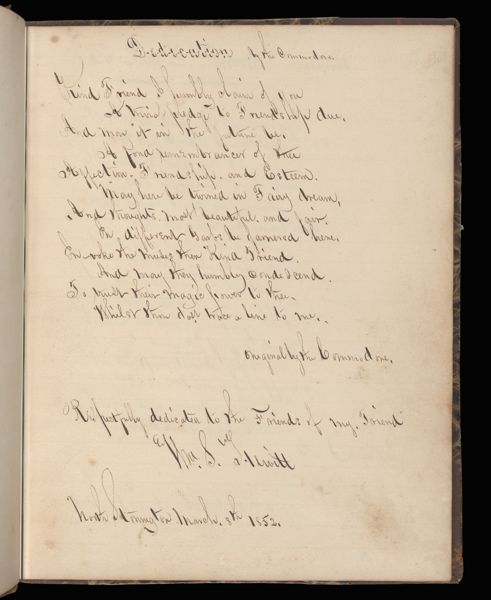 Dedication By the Commodore.
Kind Friend I humbly claim of you
A trivial pledge to Friendship due,
And may it in the future be,
A fond remembrancer of thee
Affection, Friendship, and Esteem.
May here be twined in Fairy dream,
And thoughts most beautiful and fair.
On different be garnered here,
Envoke the Muses then Kind Friend.
And may they humbly condescend.
To trust their magic power to thee.
Whilst thou dost trace a line to me.
Original by the Commodore.
Respectfully dedicated to the Friends of my Friend
Wm. S.
North Stonington March. 8th 1852.